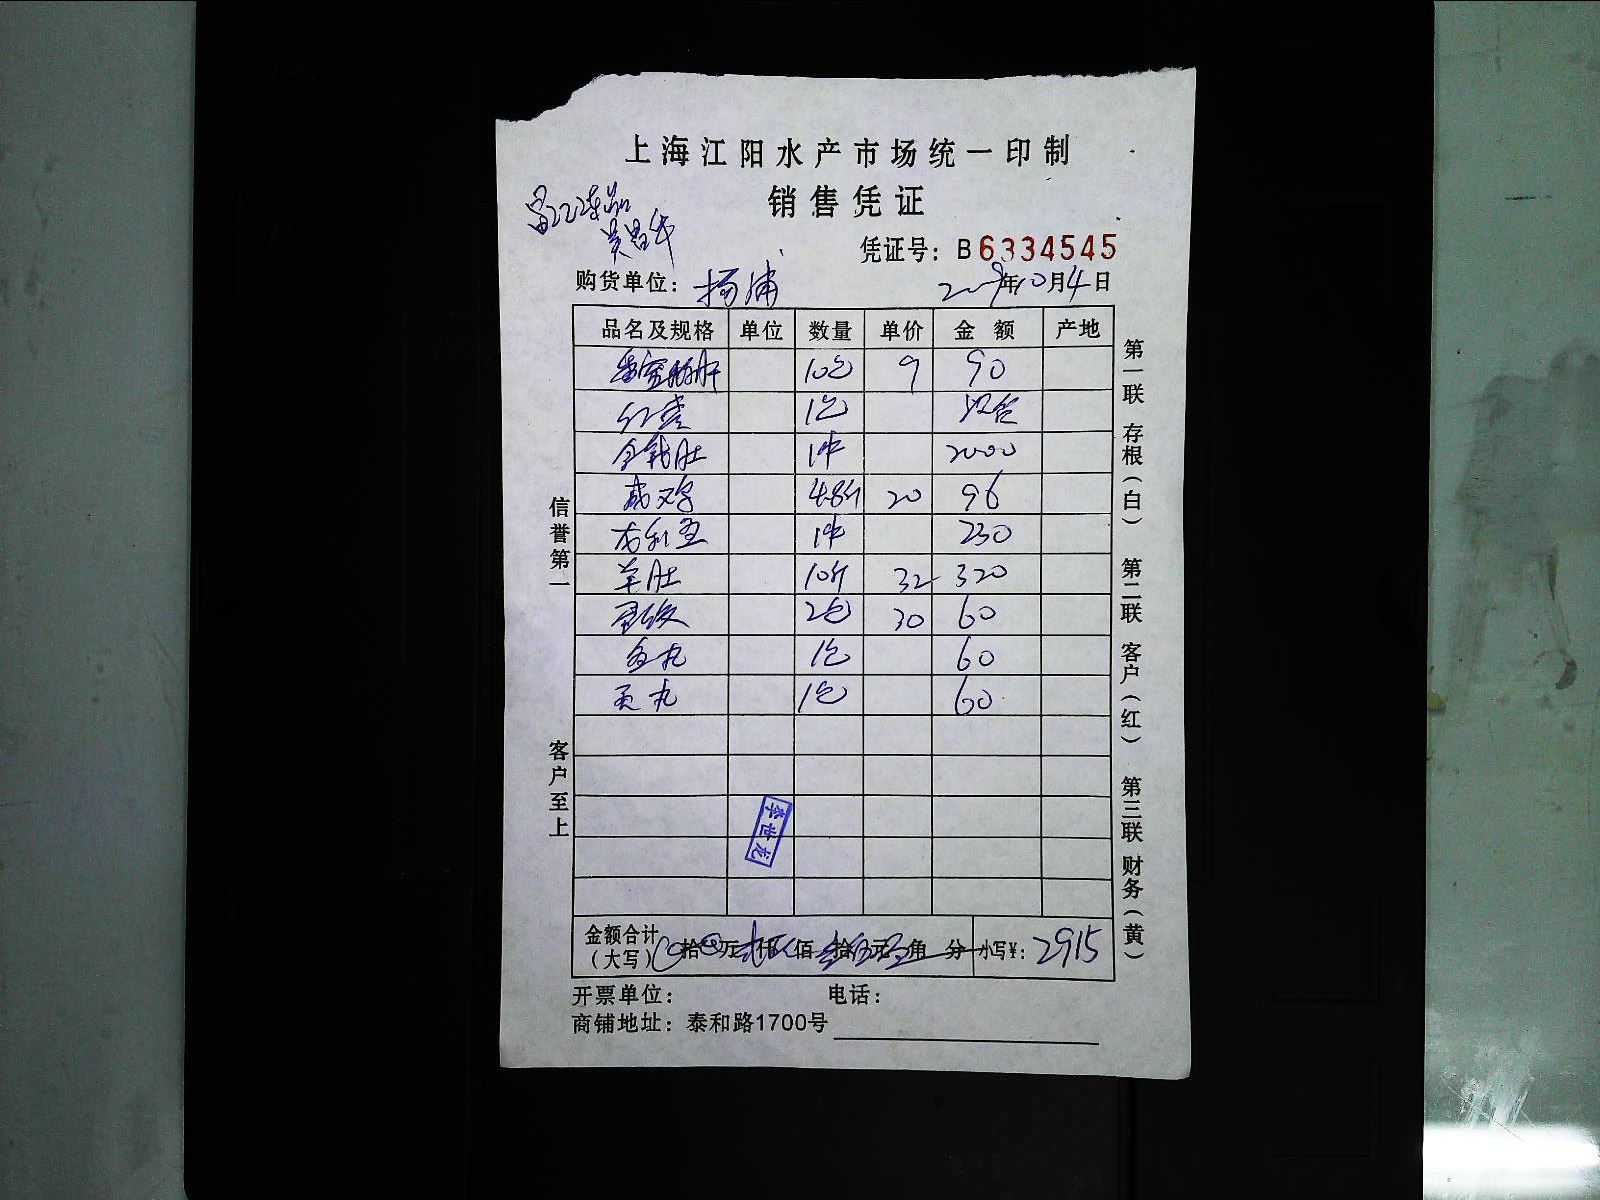 上海江阳水产市场统一印制
销售凭证
凭证号：B6334545
购货单位：杨浦 2019年10月4日
品名及规格 单位 数量 单价 金额 产地
10包 9 90
1包 没含
金钱肚 1件 2000
4.8斤 20 96
1件 230
羊肚 10斤 32 320
2包 30 60
鱼丸 1包 60
贡丸 1包 60
李世龙
金额合计（大写） 拾 万 仟 佰 拾 元 角 分 小写¥：2915
开票单位： 电话：
商铺地址：泰和路1700号
信誉第一 客户至上
第一联 存根（白） 第二联 客户（红） 第三联 财务（黄）